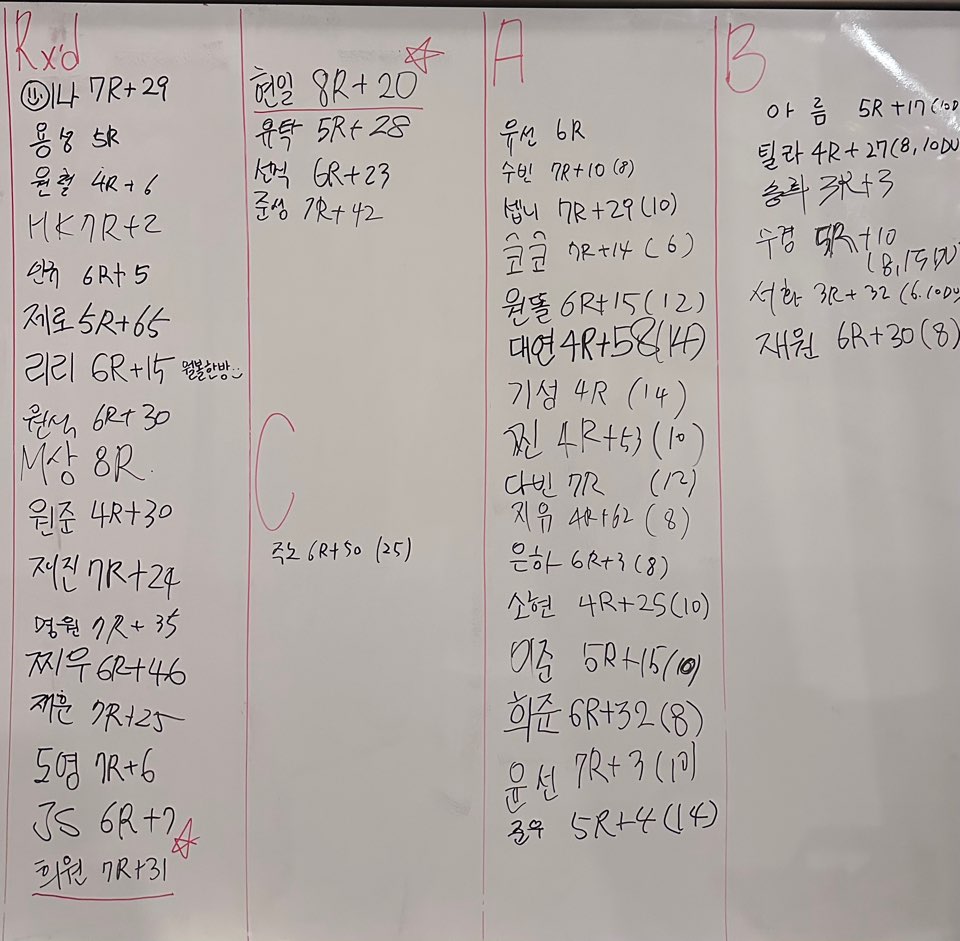 Rx'd
미나 7R+29
용성 5R
원철 4R+6
HK 7R+2
6R+5
제로 5R+65
리리 6R+15 월볼한방
원식 6R+30
M상 8R.
원준 4R+30
재진 7R+24
명원 7R+35
찌우 6R+46
재훈 7R+25
도영 7R+6
JS 6R+7
희원 7R+31
현일 8R+20
유탁 5R+28
선혁 6R+23
준성 7R+42
C
주노 6R+50 (25)
A
우선 6R
수빈 7R+10 (8)
셉니 7R+29 (10)
코코 7R+14 (6)
원똘 6R+15 (12)
대연 4R+58 (14)
기성 4R (14)
찐 4R+53 (10)
다빈 7R (12)
지유 4R+62 (8)
은하 6R+3 (8)
소현 4R+25 (10)
이준 5R+15 (10)
희준 6R+32 (8)
윤선 7R+3 (10)
준우 5R+4 (14)
B
아름 5R+17 (10D
틸라 4R+27 (8, 10DU
승희 3R+3
수경 5R+10
(8, 15DU)
서환 3R+32 (6. 10DU
재원 6R+30 (8)